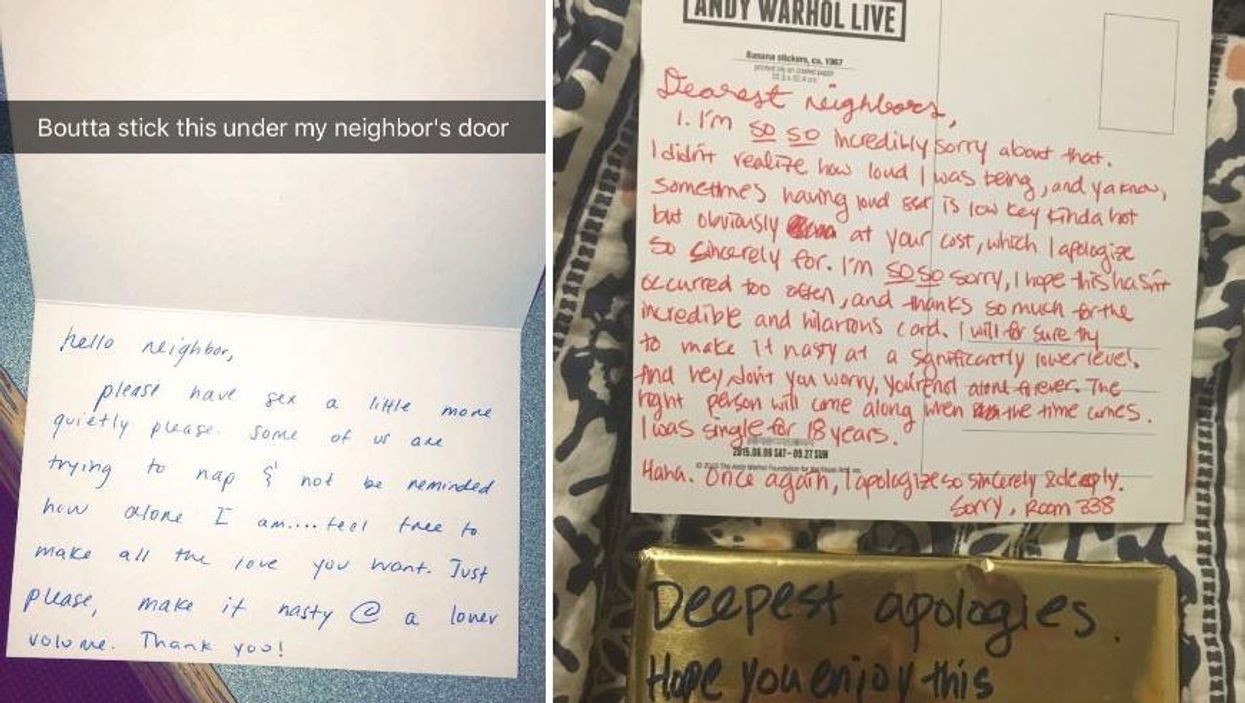 Boutta stick this under my neighbor's door
hello neighbor,
please have sex a little more
quietly please. Some of us are
trying to nap & not be reminded
how alone I am.... feel free to
make all the love you want. Just
please, make it nasty @ a lower
volume. Thank you!
ANDY WARHOL LIVE
Banana stickers, ca. 1967
printed ink on coated paper
Dearest neighbors,
1. I'm so so incredibly sorry about that.
I didn't realize how loud I was being, and ya know,
sometimes having loud sex is low key kinda hot
but obviously at your cost, which I apologize
so sincerely for. I'm so so sorry, I hope this hasn't
occurred too often, and thanks so much for the
incredible and hilarious card. I will for sure try
to make it nasty at a significantly lower level.
And hey don't you worry, you're not alone forever. The
right person will come along when the time comes.
I was single for 18 years.
2015.06.06 SAT-09.27 SUN
Haha. Once again, I apologize so sincerely & deeply.
Sorry, Room 338
Deepest apologies.
Hope you enjoy this